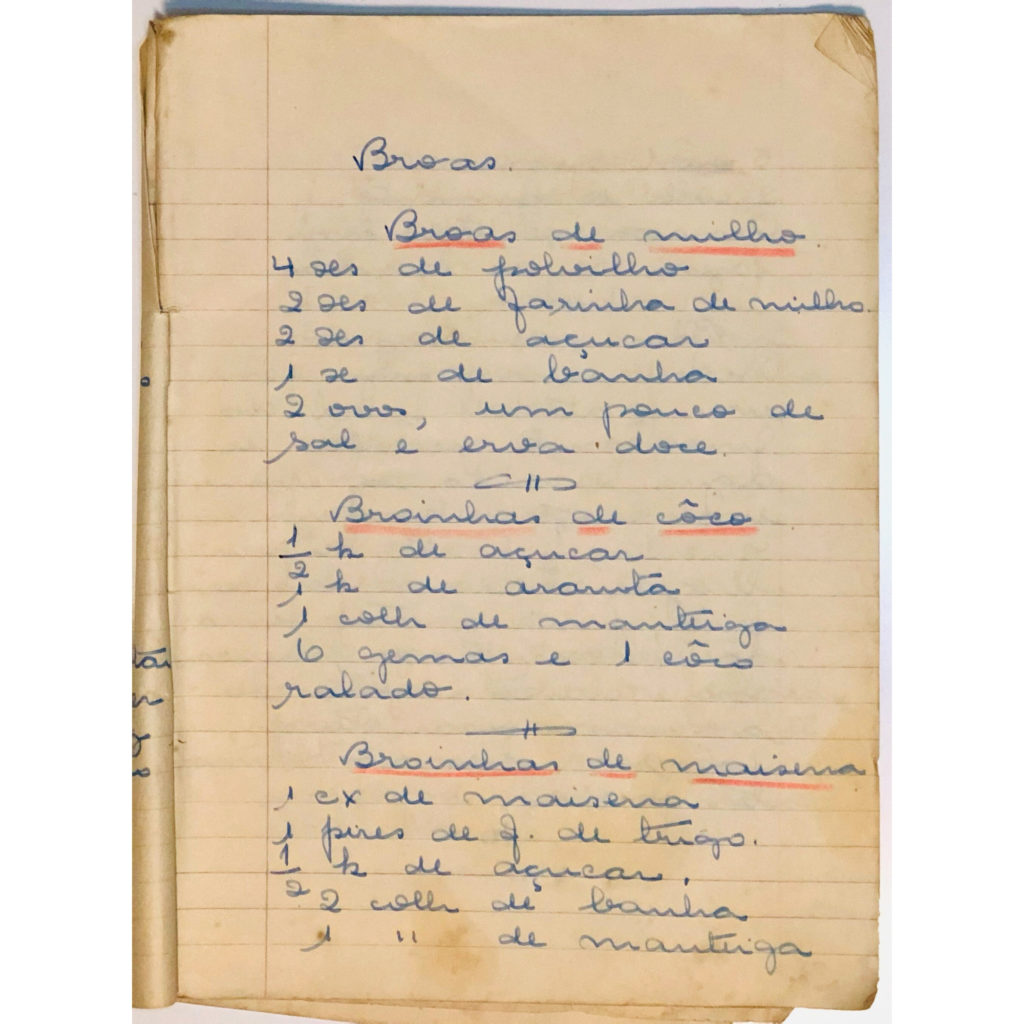 Broas.
Broas de milho
4 xes de polvilho
2 xes de farinha de milho.
2 xes de açucar
1 xe de banha
2 ovos, um pouco de
sal e erva doce.
Broinhas de côco
1/2 k de açucar
1 k de araruta
1 colh de manteiga
6 gemas e 1 côco
ralado.
Broinhas de maisena
1 cx de maisena
1 pires de f. de trigo.
1/2 k de açucar.
2 colh de banha
1 " de manteiga